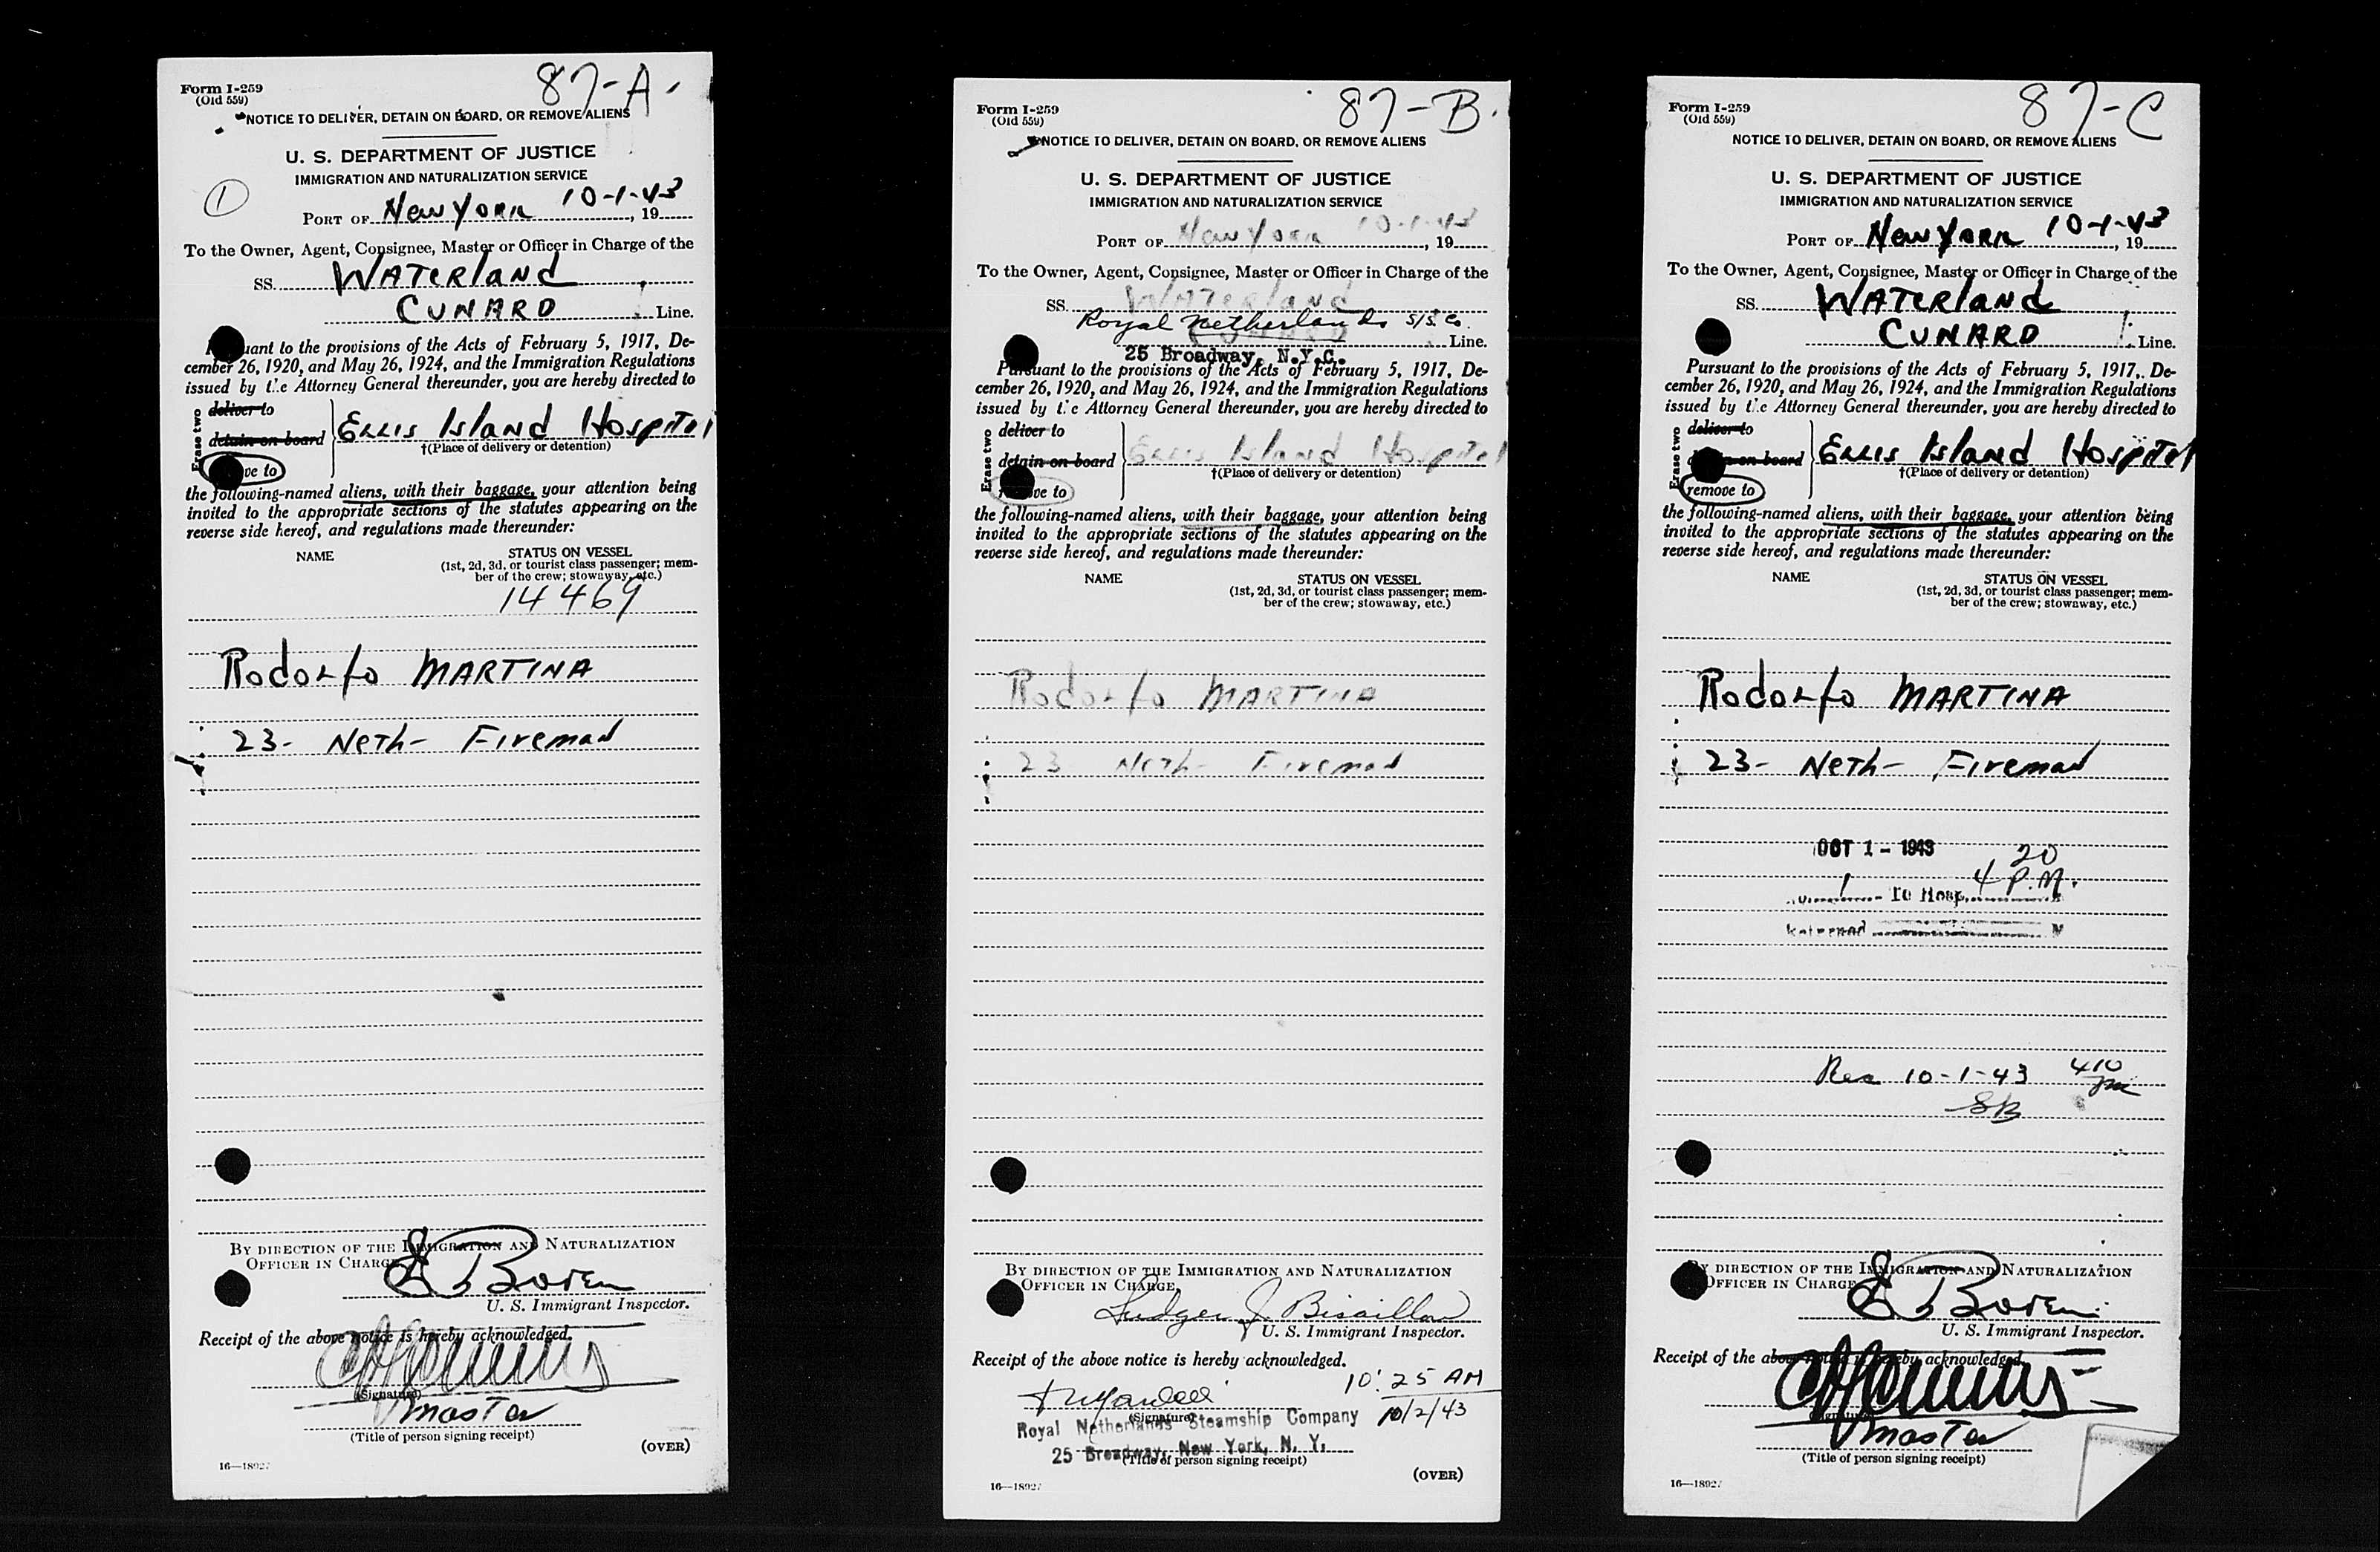 87-A.
Form I-259
(Old 559)
NOTICE TO DELIVER, DETAIN ON BOARD, OR REMOVE ALIENS
U. S. DEPARTMENT OF JUSTICE
IMMIGRATION AND NATURALIZATION SERVICE
1
PORT OF New York 10-1-43, 19
To the Owner, Agent, Consignee, Master or Officer in Charge of the
SS. WATERLAND,
CUNARD Line.
uant to the provisions of the Acts of February 5, 1917, De-
cember 26, 1920, and May 26, 1924, and the Immigration Regulations
issued by the Attorney General thereunder, you are hereby directed to
Erase two
deliver to
detain on board
ELLIS Island Hospital
†(Place of delivery or detention)
ve to
the following-named aliens, with their baggage, your attention being
invited to the appropriate sections of the statutes appearing on the
reverse side hereof, and regulations made thereunder:
NAME
STATUS ON VESSEL
(1st, 2d, 3d, or tourist class passenger; mem-
ber of the crew; stowaway, etc.)
14469
Rodolfo MARTINA
23- Neth- Fireman
BY DIRECTION OF THE IMMIGRATION AND NATURALIZATION
OFFICER IN CHARGE
U. S. Immigrant Inspector.
Receipt of the above notice is hereby acknowledged.
(Signature)
Master
(Title of person signing receipt)
(OVER)
16—18927
87-B.
Form I-259
(Old 559)
NOTICE TO DELIVER, DETAIN ON BOARD, OR REMOVE ALIENS
U. S. DEPARTMENT OF JUSTICE
IMMIGRATION AND NATURALIZATION SERVICE
PORT OF New York 10-1-43, 19
To the Owner, Agent, Consignee, Master or Officer in Charge of the
SS. WATERLAND
Royal Netherlands S/S. Co.
CUNARD Line.
25 Broadway, N.Y.C.
Pursuant to the provisions of the Acts of February 5, 1917, De-
cember 26, 1920, and May 26, 1924, and the Immigration Regulations
issued by the Attorney General thereunder, you are hereby directed to
Erase two
deliver to
detain on board
ELLIS Island Hospital
†(Place of delivery or detention)
ve to
the following-named aliens, with their baggage, your attention being
invited to the appropriate sections of the statutes appearing on the
reverse side hereof, and regulations made thereunder:
NAME
STATUS ON VESSEL
(1st, 2d, 3d, or tourist class passenger; mem-
ber of the crew; stowaway, etc.)
Rodolfo MARTINA
23 Neth- Fireman
BY DIRECTION OF THE IMMIGRATION AND NATURALIZATION
OFFICER IN CHARGE,
Ludger J. Bisaillon
U. S. Immigrant Inspector.
Receipt of the above notice is hereby acknowledged.
10:25 AM
(Signature)
Royal Netherlands Steamship Company 10/2/43
25 Broadway, New York, N. Y.
(Title of person signing receipt)
(OVER)
16—18927
87-C
Form I-259
(Old 559)
NOTICE TO DELIVER, DETAIN ON BOARD, OR REMOVE ALIENS
U. S. DEPARTMENT OF JUSTICE
IMMIGRATION AND NATURALIZATION SERVICE
PORT OF New York 10-1-43, 19
To the Owner, Agent, Consignee, Master or Officer in Charge of the
SS. WATERLAND
CUNARD Line.
Pursuant to the provisions of the Acts of February 5, 1917, De-
cember 26, 1920, and May 26, 1924, and the Immigration Regulations
issued by the Attorney General thereunder, you are hereby directed to
Erase two
deliver to
on board
ELLIS Island Hospital
†(Place of delivery or detention)
remove to
the following-named aliens, with their baggage, your attention being
invited to the appropriate sections of the statutes appearing on the
reverse side hereof, and regulations made thereunder:
NAME
STATUS ON VESSEL
(1st, 2d, 3d, or tourist class passenger; mem-
ber of the crew; stowaway, etc.)
Rodolfo MARTINA
23- Neth- Fireman
OCT 1 - 1943
1 To Hosp. 4 20 P.M.
Rec 10-1-43 410 PM
SB
BY DIRECTION OF THE IMMIGRATION AND NATURALIZATION
OFFICER IN CHARGE
U. S. Immigrant Inspector.
Receipt of the above notice is hereby acknowledged.
(Signature)
Master
(Title of person signing receipt)
16—18927